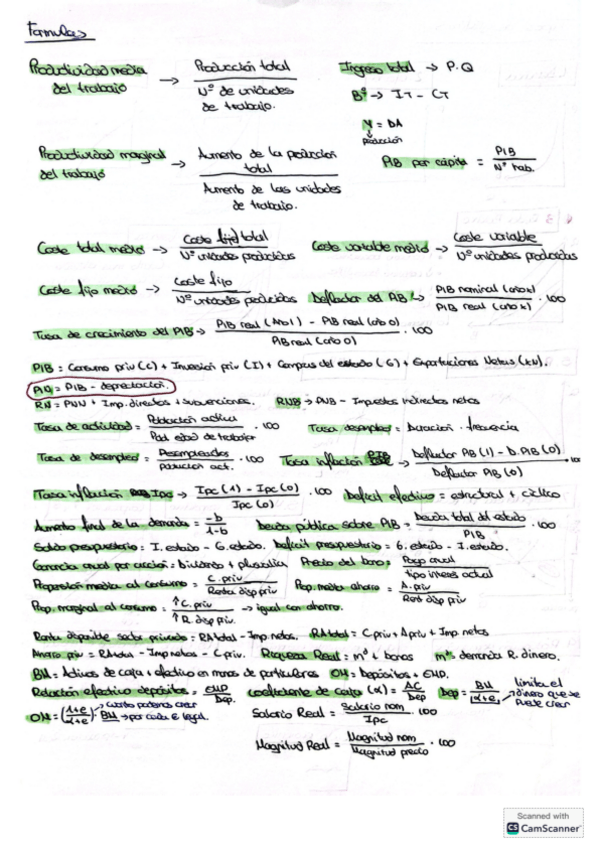 Formulas
Productividad media del trabajo → Producción total / Nº de unidades de trabajo.
Ingreso total → P.Q
Bº → IT - CT
Y = DA
producción
Productividad marginal del trabajo → Aumento de la produccion total / Aumento de las unidades de trabajo.
PIB per cápita = PIB / Nº hab.
Coste total medio → Coste total / Nº unidades producidas
Coste variable medio → Coste variable / Nº unidades producidas
Coste fijo medio → Coste fijo / Nº unidades producidas
Deflactor del PIB → PIB nominal (año x) / PIB real (año x) · 100
Tasa de crecimiento del PIB → PIB real (Año 1) - PIB real (año 0) / PIB real (año 0) · 100
PIB = Consumo priv (C) + Inversion priv (I) + Compras del estado (G) + Exportaciones Netas (XN).
= PIB - depreciación.
RN = PNN + Imp. directos + subvenciones.
RNB → PNB - Impuestos indirectos netos
Tasa de actividad = Población activa / Pob edad de trabajar · 100
Tasa desempleo = Duración · frecuencia
Tasa de desempleo = Desempleados / Población act. · 100
Tasa inflación PIB → Deflactor PIB (1) - D. PIB (0) / Deflactor PIB (0) · 100
Tasa inflación IPC → Ipc (1) - Ipc (0) / Ipc (0) · 100
Deficit efectivo = estructural + cíclico
Aumento final de la demanda = -b / 1-b
Deuda pública sobre PIB = Deuda total del estado / PIB · 100
Saldo presupuestario = I. estado - G. estado.
Deficit presupuestario = G. estado - I. estado.
Ganancia anual por accion = Dividendo + plusvalia
Precio del bono = Pago anual / tipo interes actual
Propension media al consumo = C. priv / Renta disp priv
Prop. media ahorro = A. priv / Rent disp priv
Prop. marginal al consumo = ↑ C. priv / ↑ R. disp priv. → igual con ahorro.
Renta disponible sector privado = RA total - Imp. netos.
RA total = C priv + A priv + Imp. netos
Ahorro priv = RA total - Imp netos - C priv.
Riqueza Real = mᵈ + bonos
demanda R. dinero.
BM = Activos de caja + efectivo en manos de particulares
OM = Depósitos + EMP.
Relación efectivo depósitos = EMP / Dep.
Coeficiente de caja (α) = AC / Dep
Dep = BM / α+e
limita el dinero que se puede crear
OM = (1+e / α+e) · BM
cuanto podemos crear
→ por caida e legal.
Salario Real = Salario nom / Ipc · 100
Magnitud Real = Magnitud nom / Magnitud precio · 100
Scanned with
CS CamScanner